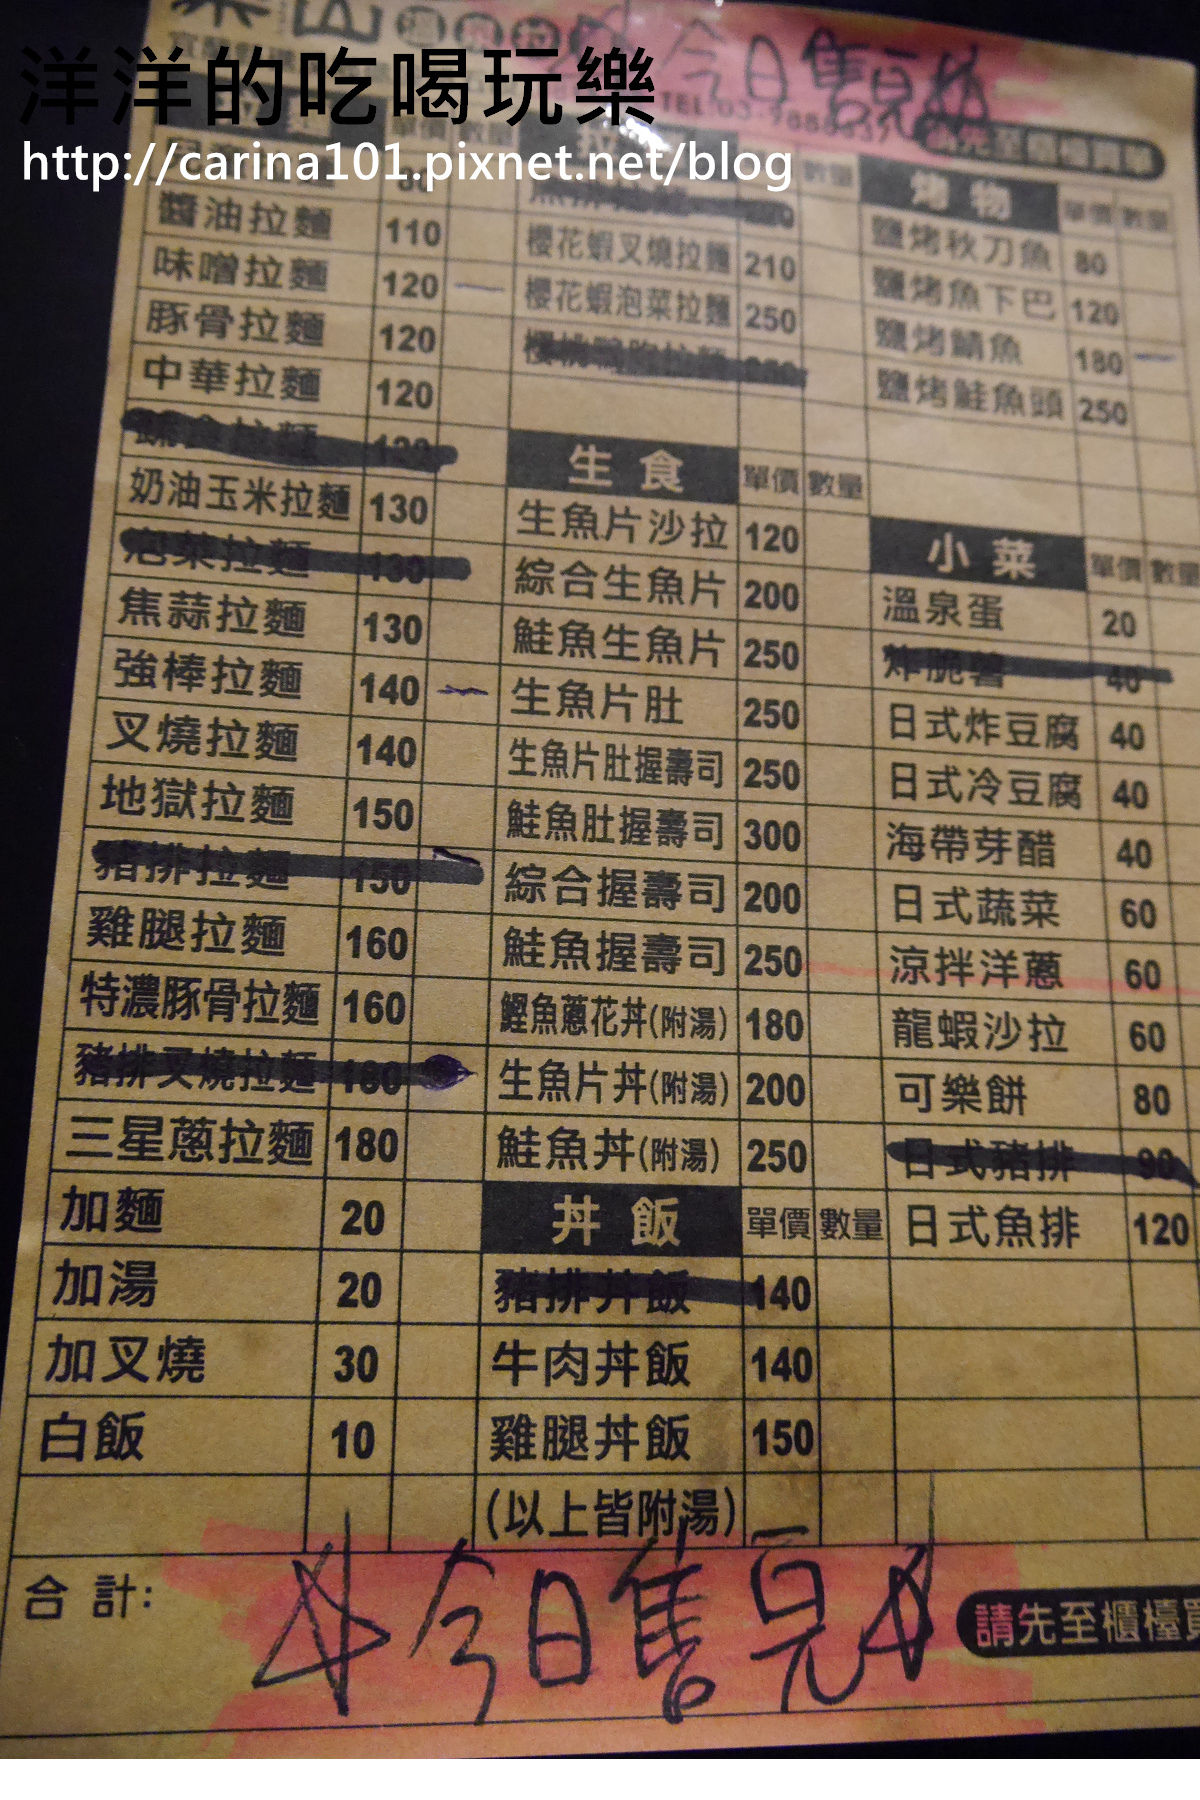 樂山溫泉拉
今日售完
洋洋的吃喝玩樂
http://carina101.pixnet.net/blog
TEL
請先至櫃檯買單
單價 數量
醬油拉麵 110
味噌拉麵 120
豚骨拉麵 120
中華拉麵 120
蔬食拉麵 120
奶油玉米拉麵 130
泡菜拉麵 130
焦蒜拉麵 130
強棒拉麵 140
叉燒拉麵 140
地獄拉麵 150
豬排拉麵 150
雞腿拉麵 160
特濃豚骨拉麵 160
豬排叉燒拉麵 180
三星蔥拉麵 180
加麵 20
加湯 20
加叉燒 30
白飯 10
數量
櫻花蝦叉燒拉麵 210
櫻花蝦泡菜拉麵 250
生食 單價 數量
生魚片沙拉 120
綜合生魚片 200
鮭魚生魚片 250
生魚片肚 250
生魚片肚握壽司 250
鮭魚肚握壽司 300
綜合握壽司 200
鮭魚握壽司 250
鰹魚蔥花丼(附湯) 180
生魚片丼(附湯) 200
鮭魚丼(附湯) 250
丼飯 單價 數量
豬排丼飯 140
牛肉丼飯 140
雞腿丼飯 150
(以上皆附湯)
烤物 單價 數量
鹽烤秋刀魚 80
鹽烤魚下巴 120
鹽烤鯖魚 180
鹽烤鮭魚頭 250
小菜 單價 數量
溫泉蛋 20
炸脆薯 40
日式炸豆腐 40
日式冷豆腐 40
海帶芽醋 40
日式蔬菜 60
涼拌洋蔥 60
龍蝦沙拉 60
可樂餅 80
日式豬排 90
日式魚排 120
合計:
今日售完
請先至櫃檯買